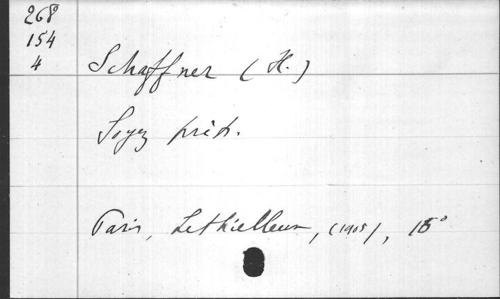 268
154
4
Schaffner (H.)
Soyez prêts.
Paris, Lethielleux, (1905), 16°